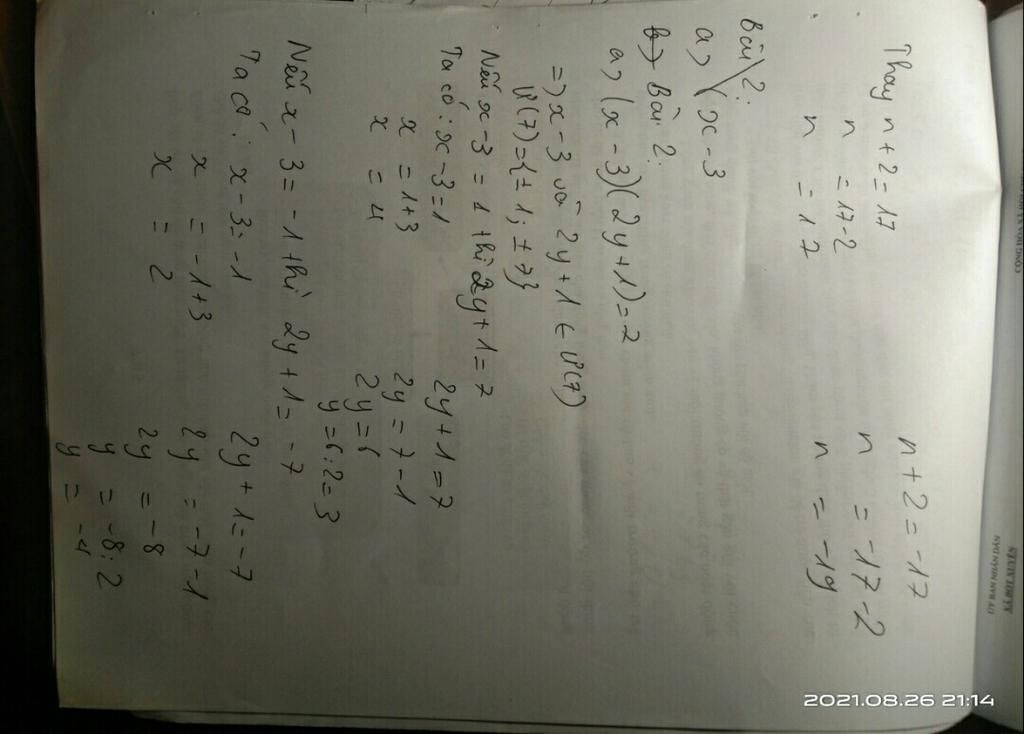 Thay n+2=17
n = 17-2
n = 17
n+2=-17
n = -17-2
n = -19
Bài 2:
a, (x-3
b, Bài 2:
a, (x-3)(2y+1)=7
=) x-3 và 2y+1 ∈ Ư(7)
Ư(7)={±1; ±7}
Nếu x-3 = 1 thì 2y+1=7
Ta có: x-3=1
x = 1+3
x = 4
2y+1=7
2y = 7-1
2y = 6
y = 6:2=3
Nếu x-3=-1 thì 2y+1=-7
Ta có: x-3=-1
x = -1+3
x = 2
2y+1=-7
2y = -7-1
2y = -8
y = -8:2
y = -4
ỦY BAN NHÂN DÂN
2021.08.26 21:14